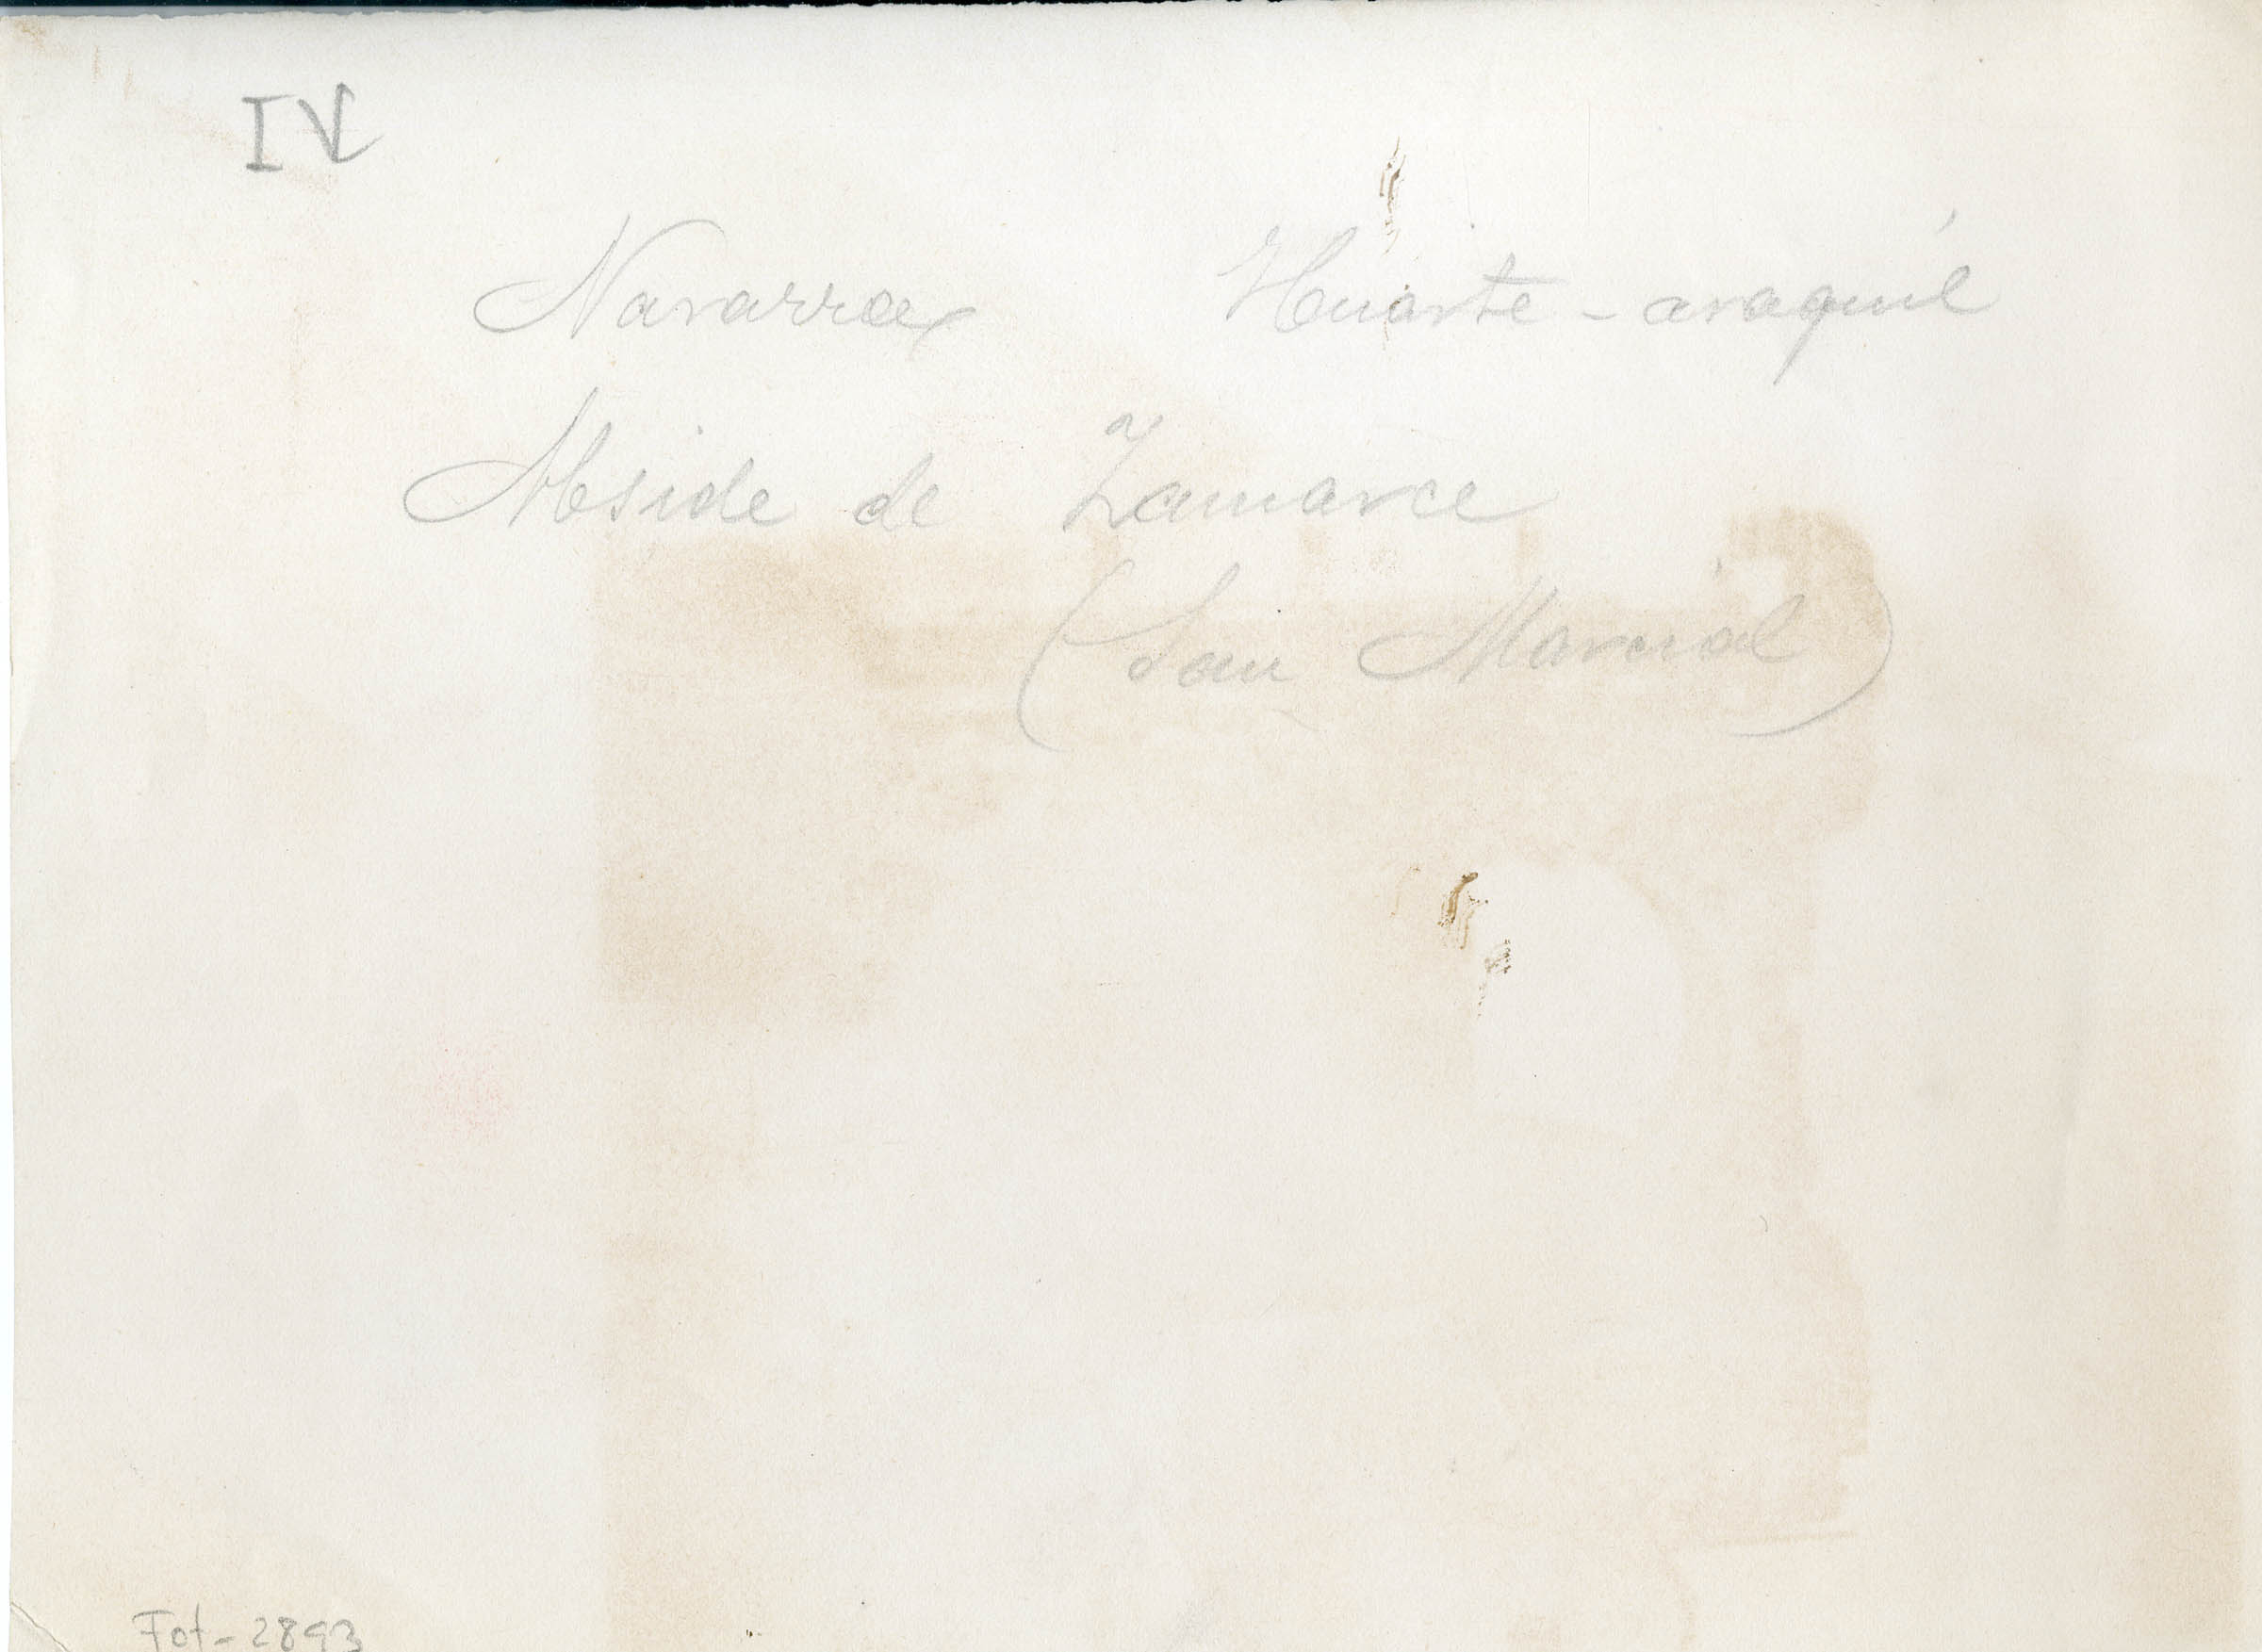 IV
Navarra Huarte - araquil
Abside de Zamarce
(San Marcial)
Fot - 2893